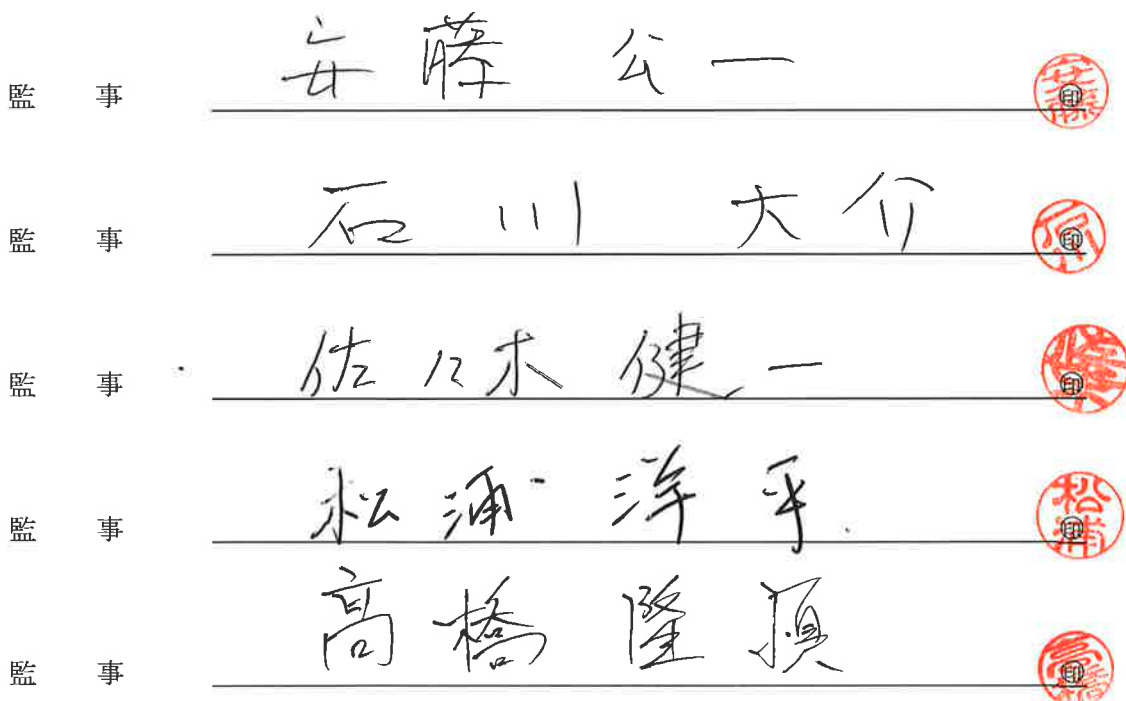 監事 安藤 公一 ㊞
監事 石川 大介 ㊞
監事 佐々木 健一 ㊞
監事 松浦 洋平 ㊞
監事 高橋 隆 ㊞